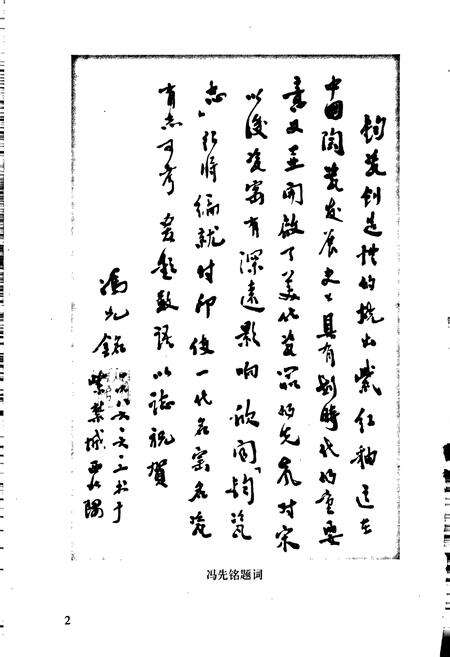 钧瓷创造性的挠出紫红釉这在
中国陶瓷发展史上具有划时代的重要
意义并开启了美化瓷器的先声对宋
以后瓷窑有深远影响欣闻「钧瓷
志」行将编就付印使一代名窑名瓷
有志可考爰题数语以志祝贺
冯先铭
一九八六、六、二 于
紫禁城西北隅
冯先铭题词
2